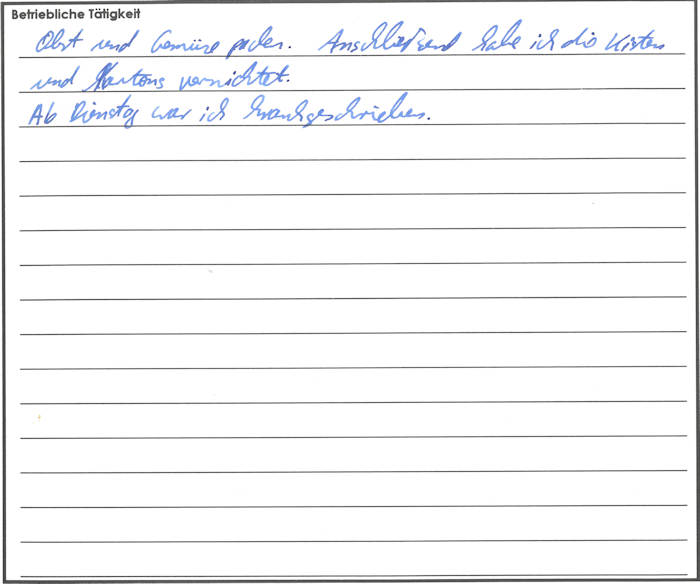 Betriebliche Tätigkeit
Obst und Gemüse packen. Anschließend habe ich die Kisten
und Kartons vernichtet.
Ab Dienstag war ich krankgeschrieben.